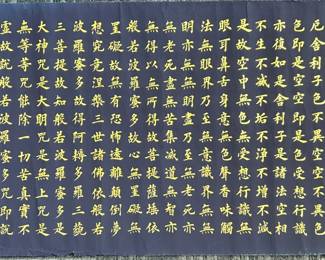 厄舍利子色不異空空不異色
色即是空空即是色受想行識
亦復如是舍利子是諸法空相
不生不滅不垢不淨不增不減
是故空中無色無受想行識無
眼耳鼻舌身意無色聲香味觸
法無眼界乃至無意識界無無
明亦無無明盡乃至無老死亦
無老死盡無苦集滅道無智亦
無得以無所得故菩提薩埵依
般若波羅蜜多故心無罣礙無
罣礙故無有恐怖遠離顛倒夢
想究竟涅槃三世諸佛依般若
波羅蜜多故得阿耨多羅三藐
三菩提故知般若波羅蜜多是
大神咒是大明咒是無上咒是
無等等咒能除一切苦真實不
虛故說般若波羅蜜多咒即說